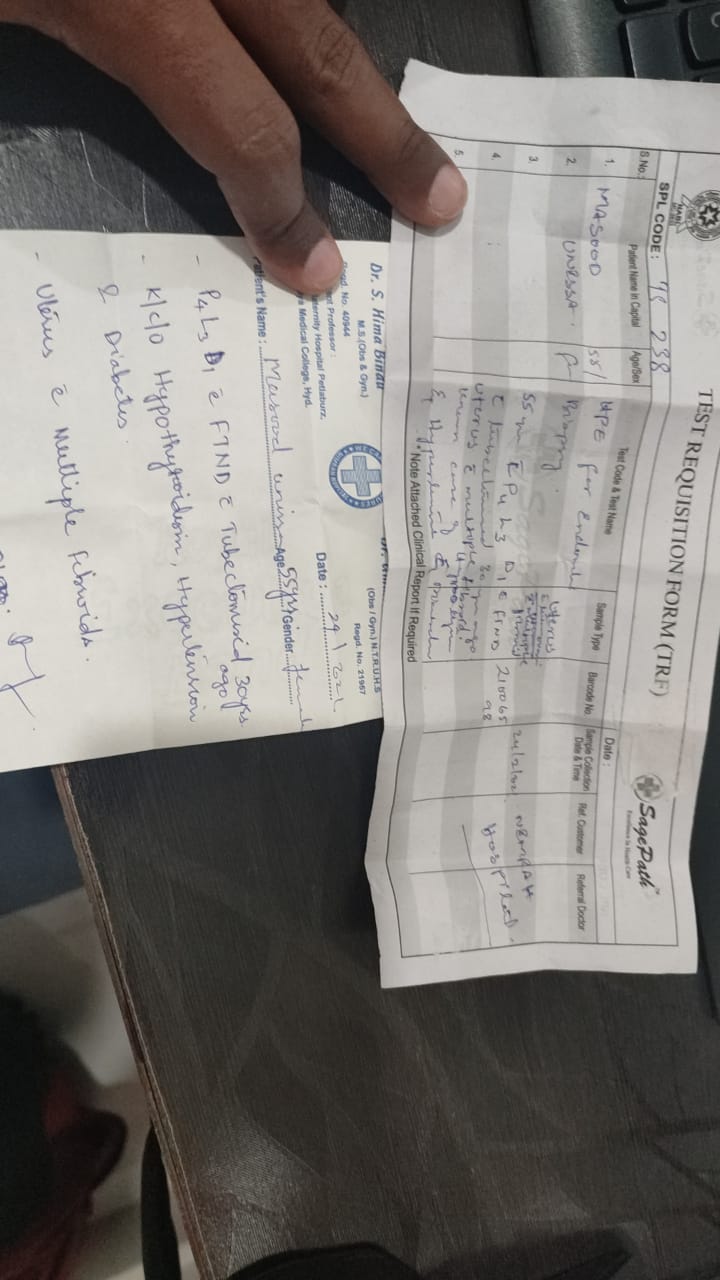 TEST REQUISITION FORM (TRF)
SagePath™
Excellence In Health Care
SPL CODE: TS 238
Date :
S.No. Patient Name in Capital Age/Sex Test Code & Test Name Sample Type Barcode No. Sample Collection Date & Time Ref. Customer Referral Doctor
1. MASOOD 55/ HPE for
2. UNESSA. F Biopsy. Uterus
3. 55 yr c̄ P4 L3 D1 c̄ FTND 210065 24/2/2021 NEMRAH
4. c̄ tubectomised 30 yr ago 98 Hospital
uterus c̄ multiple fibroids
5. known case of
& Hypertension
* Note Attached Clinical Report If Required
Dr. S. Hima Bindu
M.S (Obs & Gyn.)
Regd. No. 40944
(Obs / Gyn.) N.T.R.U.H.S
Regd. No. 21957
nt Professor :
aternity Hospital Petlaburz,
a Medical College, Hyd.
Date : 24 / 2021.
Patient's Name : Masood unissa Age 55yrs Gender female
- P4 L3 D1 c̄ FTND c̄ Tubectomised 30yrs ago
- K/c/o Hypothyroidism, Hypertension
& Diabetes.
- Uterus c̄ Multiple fibroids.